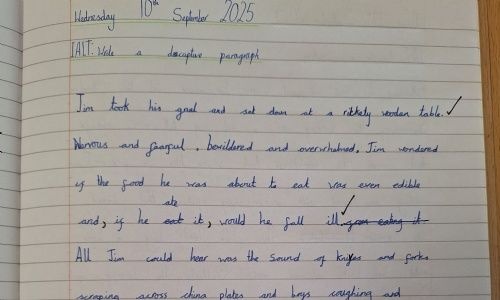 Wednesday 10th September 2025
IALT: Write a descriptive paragraph
Jim took his gruel and sat down at a rickety wooden table.
Nervous and fearful, bewildered and overwhelmed, Jim wondered
if the food he was about to eat was even edible
ate
and, if he eat it, would he fall ill. from eating it
All Jim could hear was the sound of knifes and forks
scraping across china plates and boys coughing and